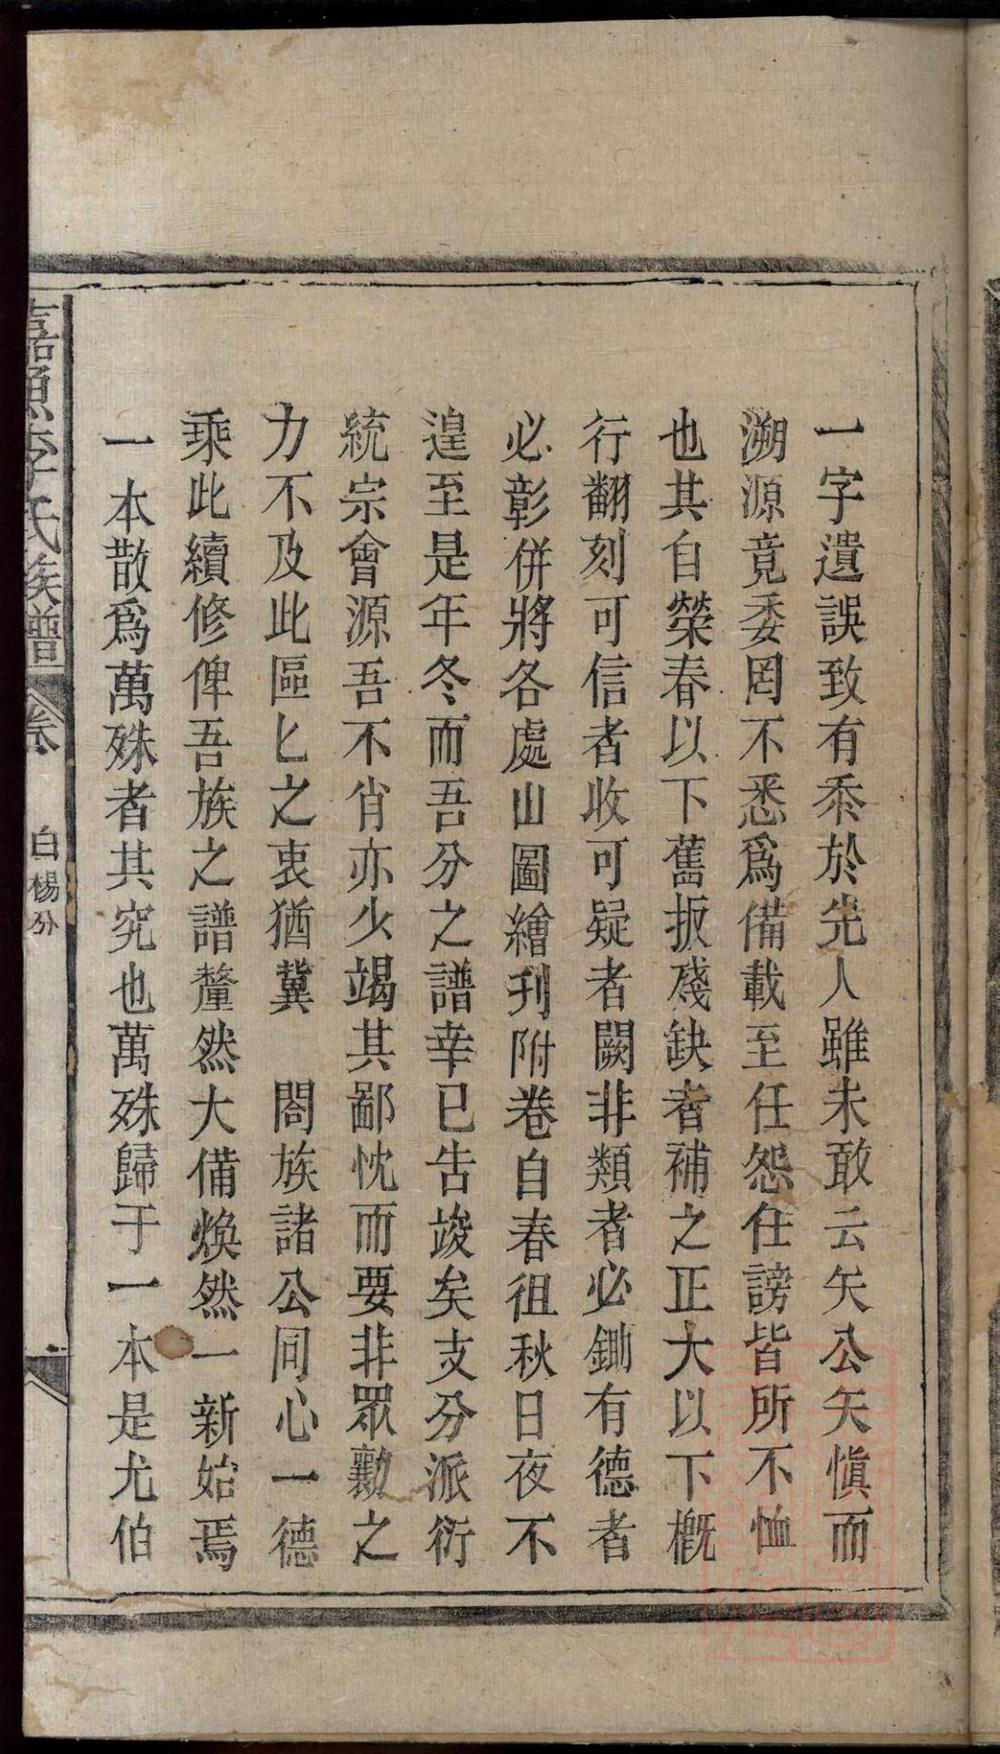 一字遺誤致有忝於先人雖未敢云矢公矢愼而
溯源竟委罔不悉爲備載至任怨任謗皆所不恤
也其自榮春以下舊扳殘缺者補之正大以下槪
行翻刻可信者收可疑者闕非類者必鋤有德者
必彰併將各處山圖繪刋附卷自春徂秋日夜不
遑至是年冬而吾分之譜幸已告竣矣支分派衍
統宗會源吾不肖亦少竭其鄙忱而要非眾勷之
力不及此區匕之衷猶冀　閤族諸公同心一德
乘此續修俾吾族之譜釐然大備煥然一新始焉
一本散爲萬殊者其究也萬殊歸于一本是尤伯
李氏族譜　卷　白楊分